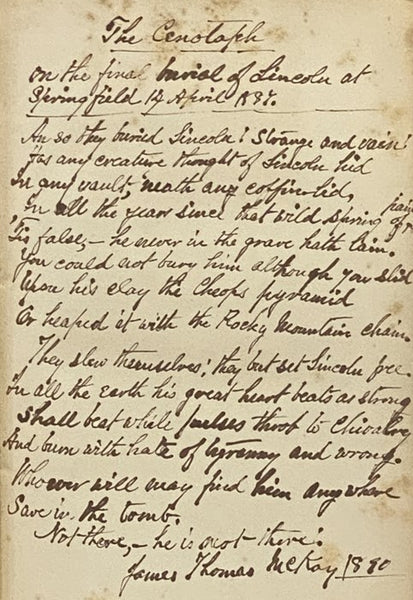 The Cenotaph
on the final burial of Lincoln at
Springfield 14 April 1887.
An so they buried Lincoln? Strange and vain!
Has any creature thought of Lincoln hid
In any vault, 'neath any coffin-lid,
In all the years since that wild spring of pain?
'Tis false, — he never in the grave hath lain.
You could not bury him although you slid
Upon his clay the Cheops pyramid
Or heaped it with the Rocky Mountain chain.
They slew themselves; they but set Lincoln free.
In all the Earth his great heart beats as strong
Shall beat while pulses throb to chivalry
And burn with hate of tyranny and wrong.
Whoever will may find him anywhere
Save in the tomb.
Not there, — he is not there!
James Thomas McKay 1890